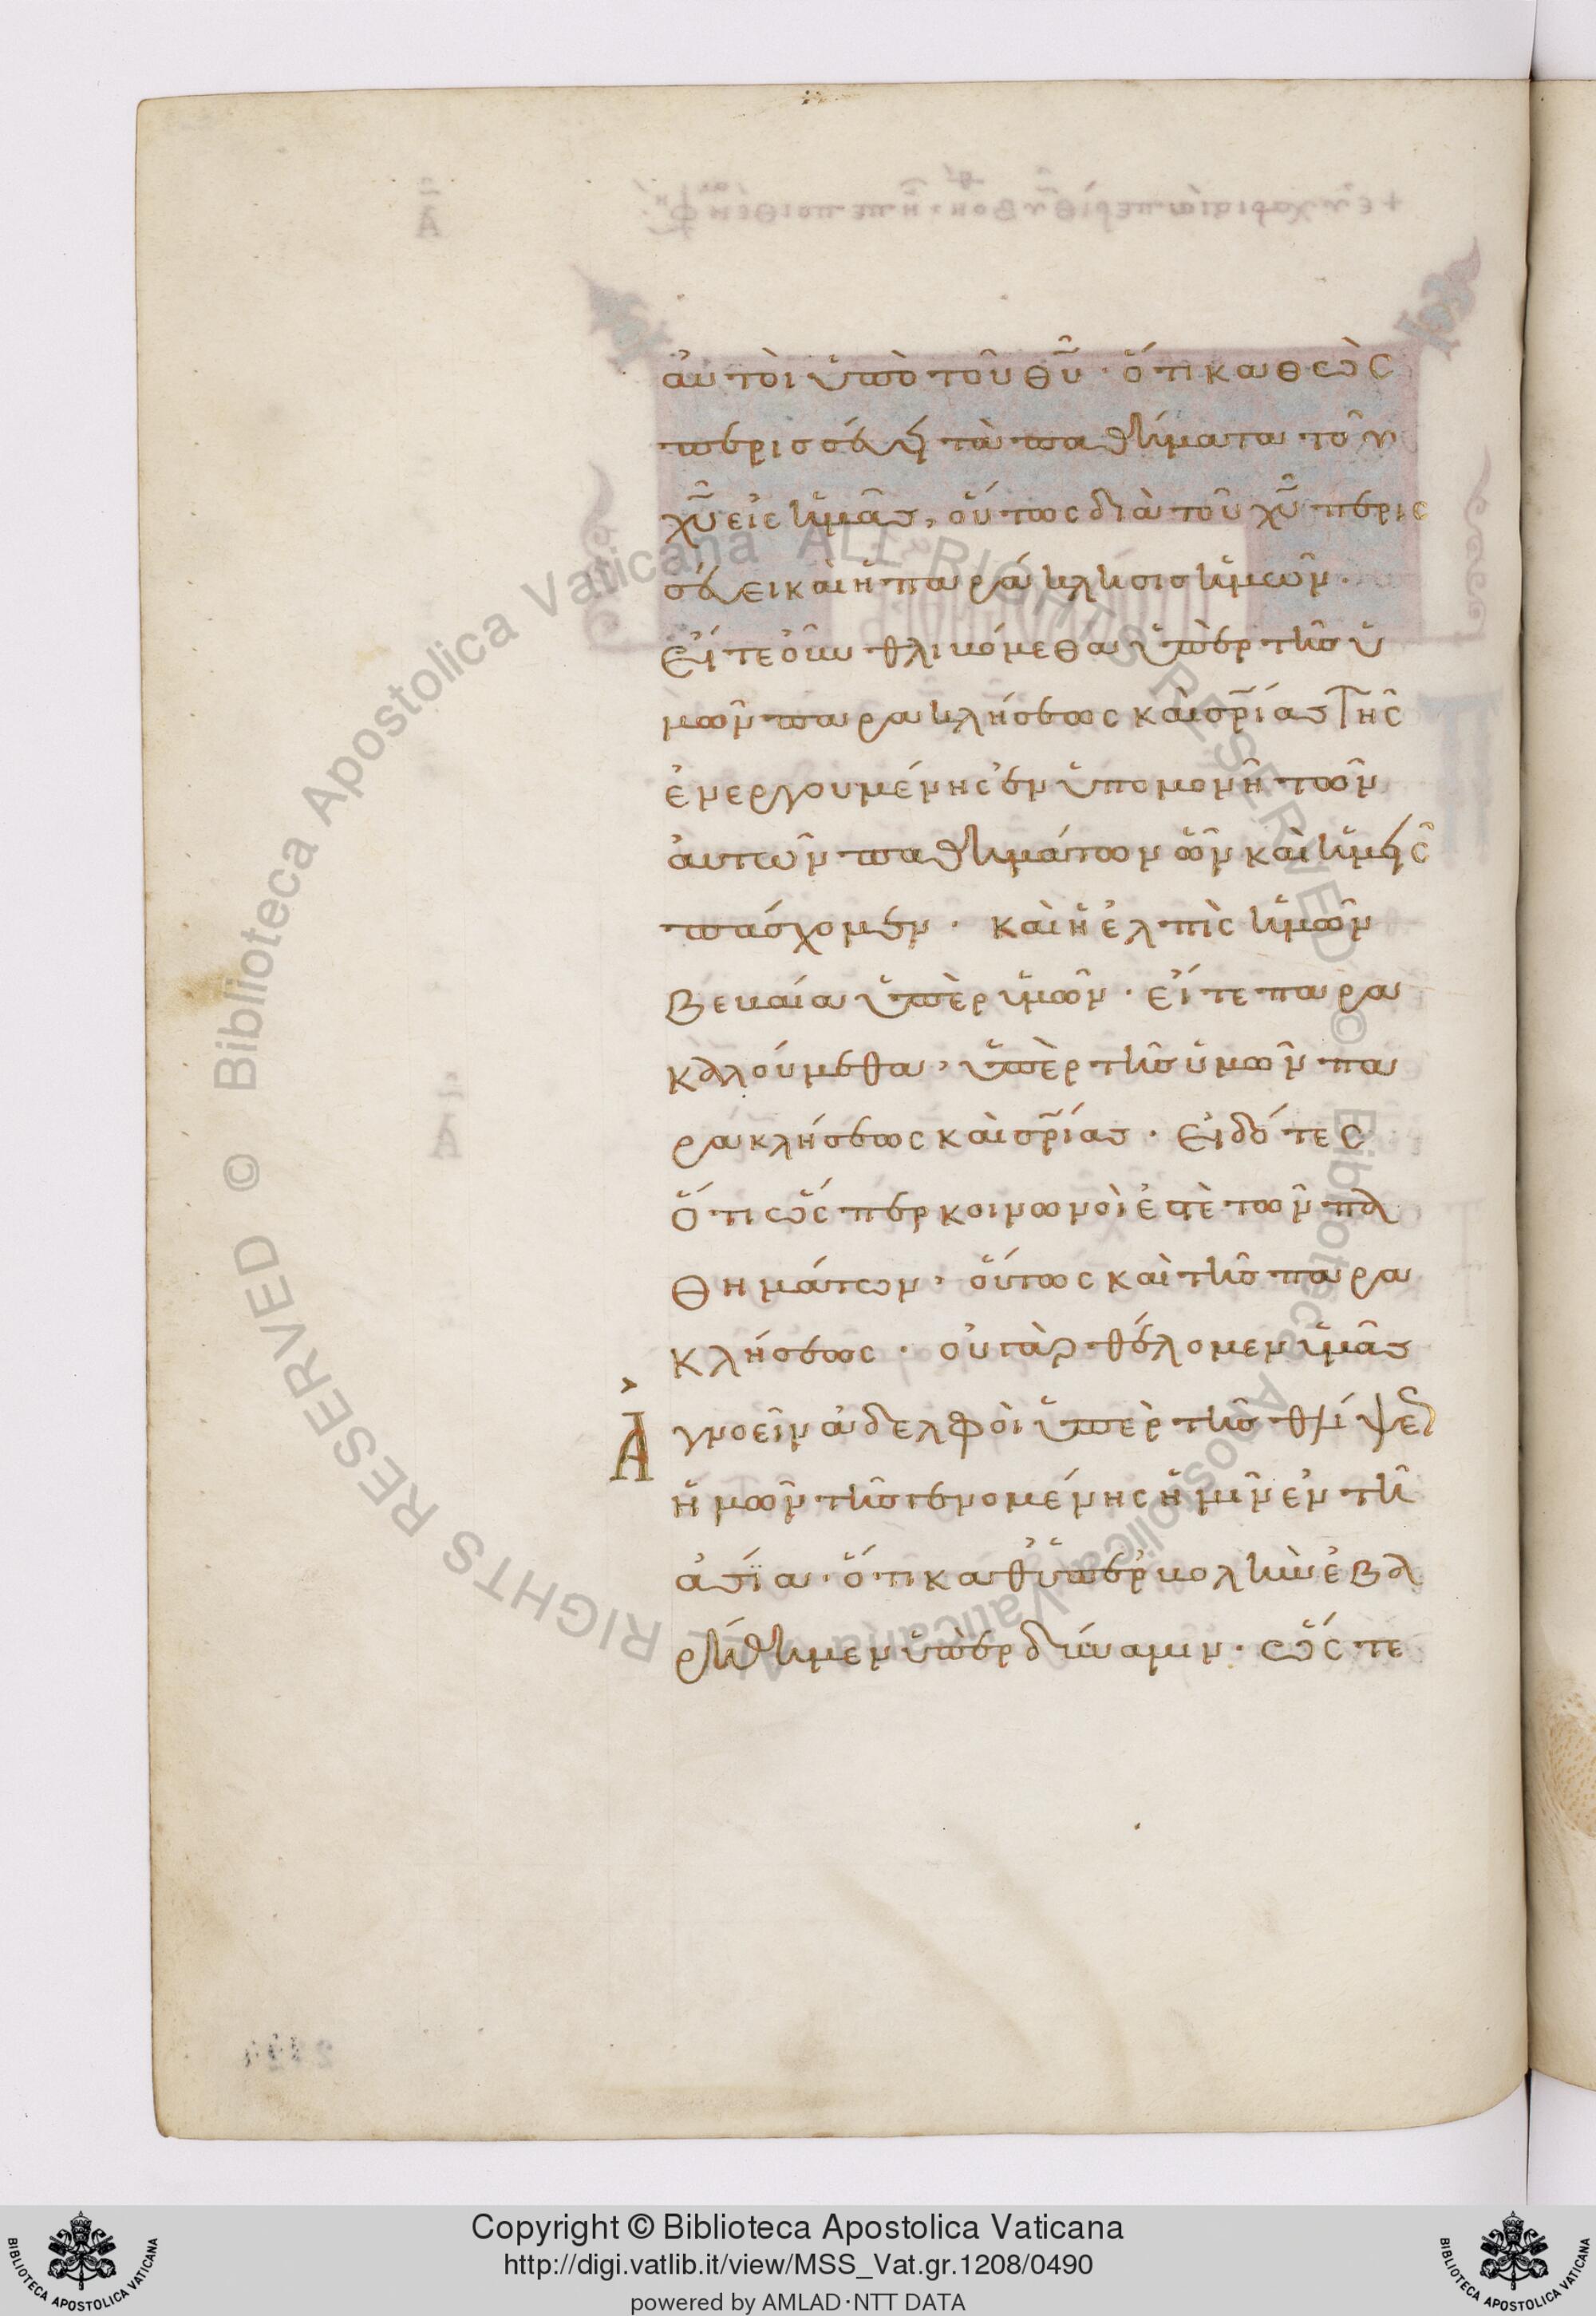 αὐτοὶ ὑπὸ τοῦ θῦ · ὅτι καθὼς
περισσεύει τὰ παθήματα τοῦ
χῦ εἰς ἡμᾶς, οὕτως διὰ τοῦ χῦ περισ
σεύει καὶ ἡ παράκλησις ἡμῶν ·
Εἴτε οὖν θλιβόμεθα ὑπὲρ τῆς ὑ
μῶν παρακλήσεως καὶ σρίας Τῆς
ἐνεργουμένης ἐν ὑπομονῆ τῶν
ἀυτῶν παθημάτων ὧν καὶ ἡμεῖς
πάσχομεν · καὶ ἡ ἐλπὶς ἡμῶν
βεβαία ὑπὲρ ὑμῶν · εἴτε παρα
καλούμεθα, ὑπὲρ τῆς ὑμῶν πα
ρακλήσεως καὶ σρίας · εἰδότες
ὅτι ὥσπερ κοινωνοὶ ἐστὲ τῶν πα
θημάτων, οὕτως καὶ τῆς παρα
κλήσεως · οὐ γὰρ θέλομεν ὑμᾶς
Ἀγνοεῖν ἀδελφοὶ ὑπὲρ τῆς θλίψεως
ἡμῶν τῆς γενομένης ἡμῖν ἐν τῆ
ἀσία · ὅτι καθ' ὑπερβολὴν ἐβα
ρήθημεν ὑπὲρ δύναμιν · ὥστε
© Biblioteca Apostolica Vaticana ALL RIGHTS RESERVED © Biblioteca Apostolica Vaticana ALL RIGHTS RESERVED
Copyright © Biblioteca Apostolica Vaticana
http://digi.vatlib.it/view/MSS_Vat.gr.1208/0490
powered by AMLAD·NTT DATA
BIBLIOTECA APOSTOLICA VATICANA
BIBLIOTECA APOSTOLICA VATICANA